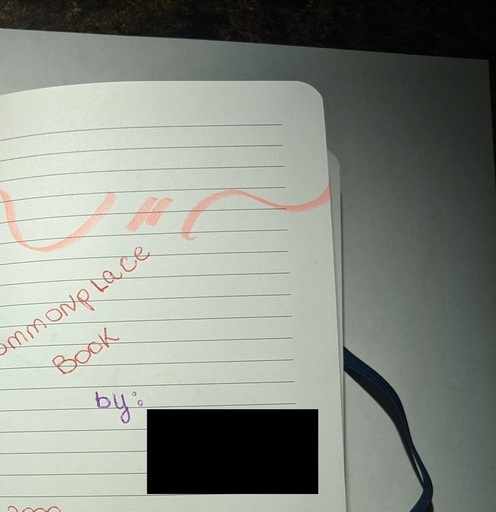 ommonplace
Book
by: